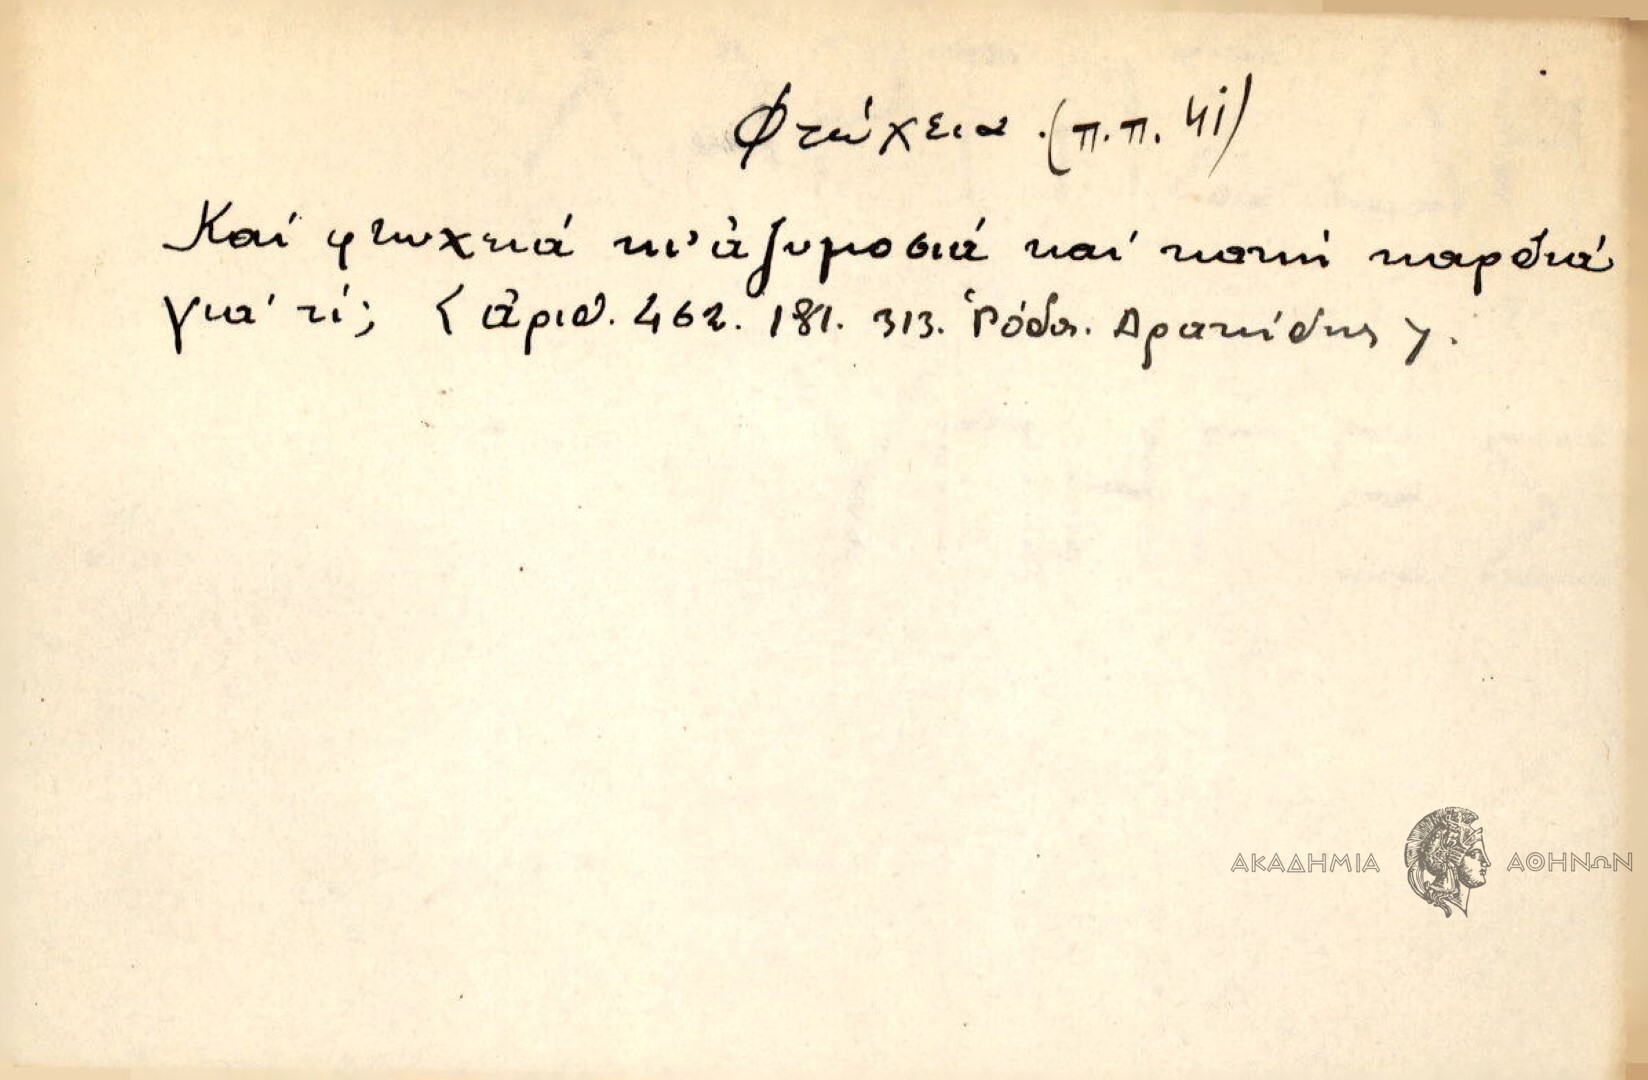 Φτώχεια. (π.π. 4i)
Καί φτωχειά κι' ἀζυμοσιά καί κακή καρδιά
γιά τί; < ἀριθ. 462. 181. 313. Ῥόδος. Δρακίδης >.
ΑΚΑΔΗΜΙΑ ΑΘΗΝΩΝ